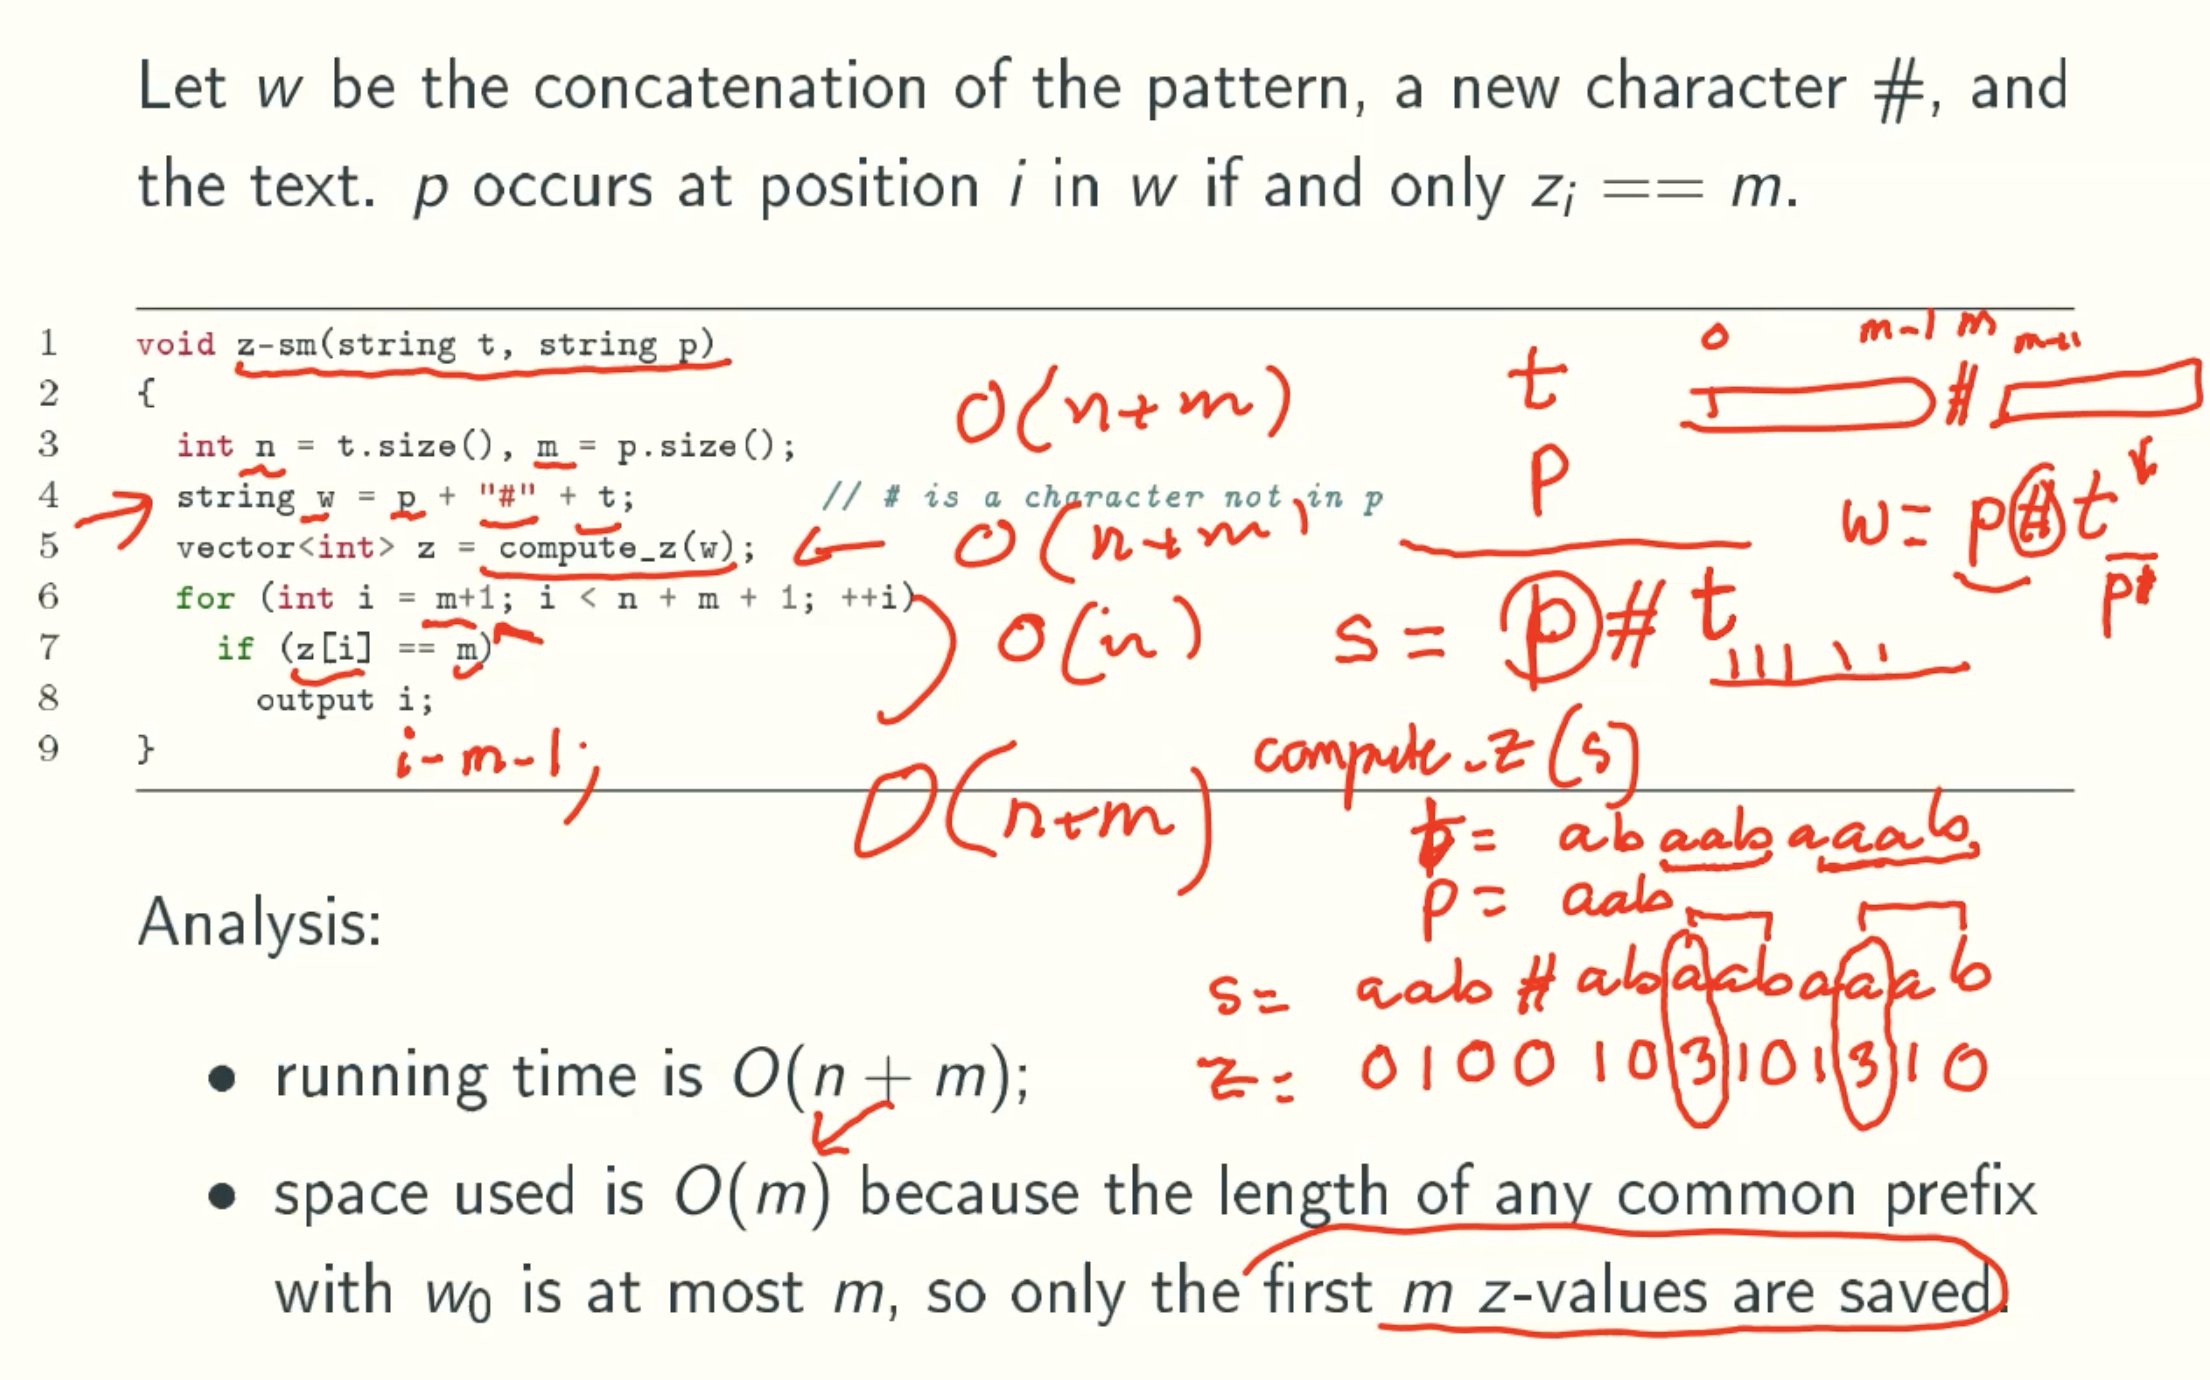 Let w be the concatenation of the pattern, a new character #, and
the text. p occurs at position i in w if and only zᵢ == m.
1 void z-sm(string t, string p)
2 {
3 int n = t.size(), m = p.size();
4 string w = p + "#" + t; // # is a character not in p
5 vector<int> z = compute_z(w);
6 for (int i = m+1; i < n + m + 1; ++i)
7 if (z[i] == m)
8 output i;
9 }
i-m-1;
O(n+m)
O(n+m)
O(n)
O(n+m)
0 m-1 m m+1
t #
p
w = p#t
p#
s = p#t
compute_z(s)
t = abaabaaab
p = aab
s = aab#abaabaaab
z = 0100103101310
Analysis:
• running time is O(n + m);
• space used is O(m) because the length of any common prefix
with w₀ is at most m, so only the first m z-values are saved.